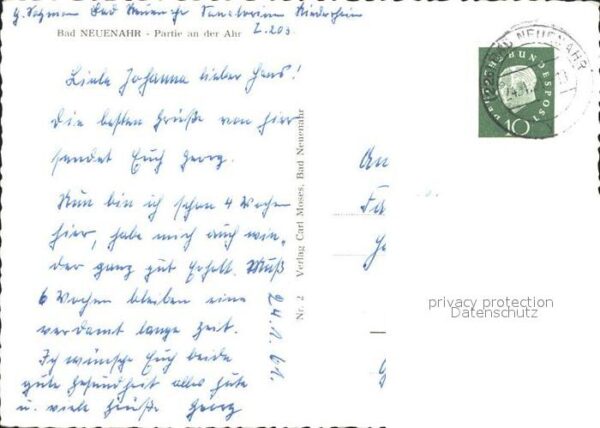 Bad Neuenahr Sanatorium Niederrhein
Z. 203
Bad NEUENAHR - Partie an der Ahr
Liebe Johanna lieber Hans!
Die besten Grüße von hier
sendet Euch Georg.
Nun bin ich schon 4 Wochen
hier, habe mich auch wie-
der ganz gut erholt. Muß
6 Wochen bleiben eine
verdamt lange Zeit.
Ich wünsche Euch beide
gute Gesundheit alles Gute
u. viele Grüße Georg
24.1.61.
Nr. 2 Verlag Carl Moses, Bad Neuenahr
BAD NEUENAHR
DEUTSCHE BUNDESPOST
10
An
Fa
privacy protection
Datenschutz